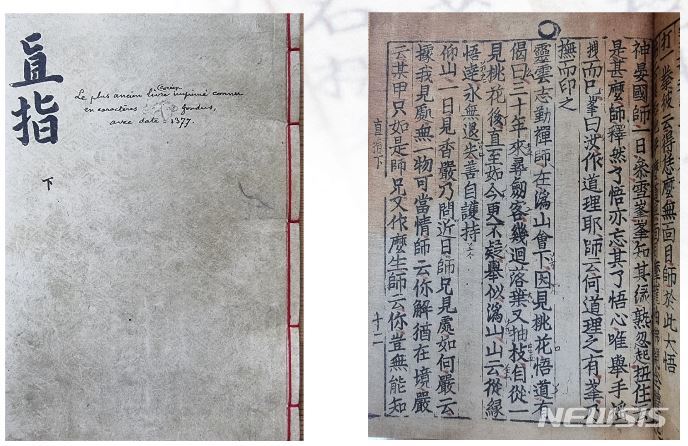 直指
下
Coréen
Le plus ancien livre imprimé connu
en caractères fondus,
avec date = 1377.
打一掌彼云得恁麼無面目師於此大悟
神晏國師一日叅雪峯峯知其緣熟忽起搊住云
是甚麽師釋然了悟亦忘其了悟心唯擧手搖
拽而已峯曰汝作道理耶師云何道理之有峯
撫而印之
靈雲志勤禪師在溈山會下因見桃花悟道有
偈曰三十年來尋劒客幾迴落葉又抽枝自從一
見桃花後直至如今更不疑擧似溈山山云從緣
悟達永無退失善自護持
仰山一日見香嚴乃問近日師兄見處如何嚴云
據我見處無一物可當情師云你解猶在境嚴
云某甲只如是師兄又作麽生師云你豈無能知
直指下
十二
NEWSIS